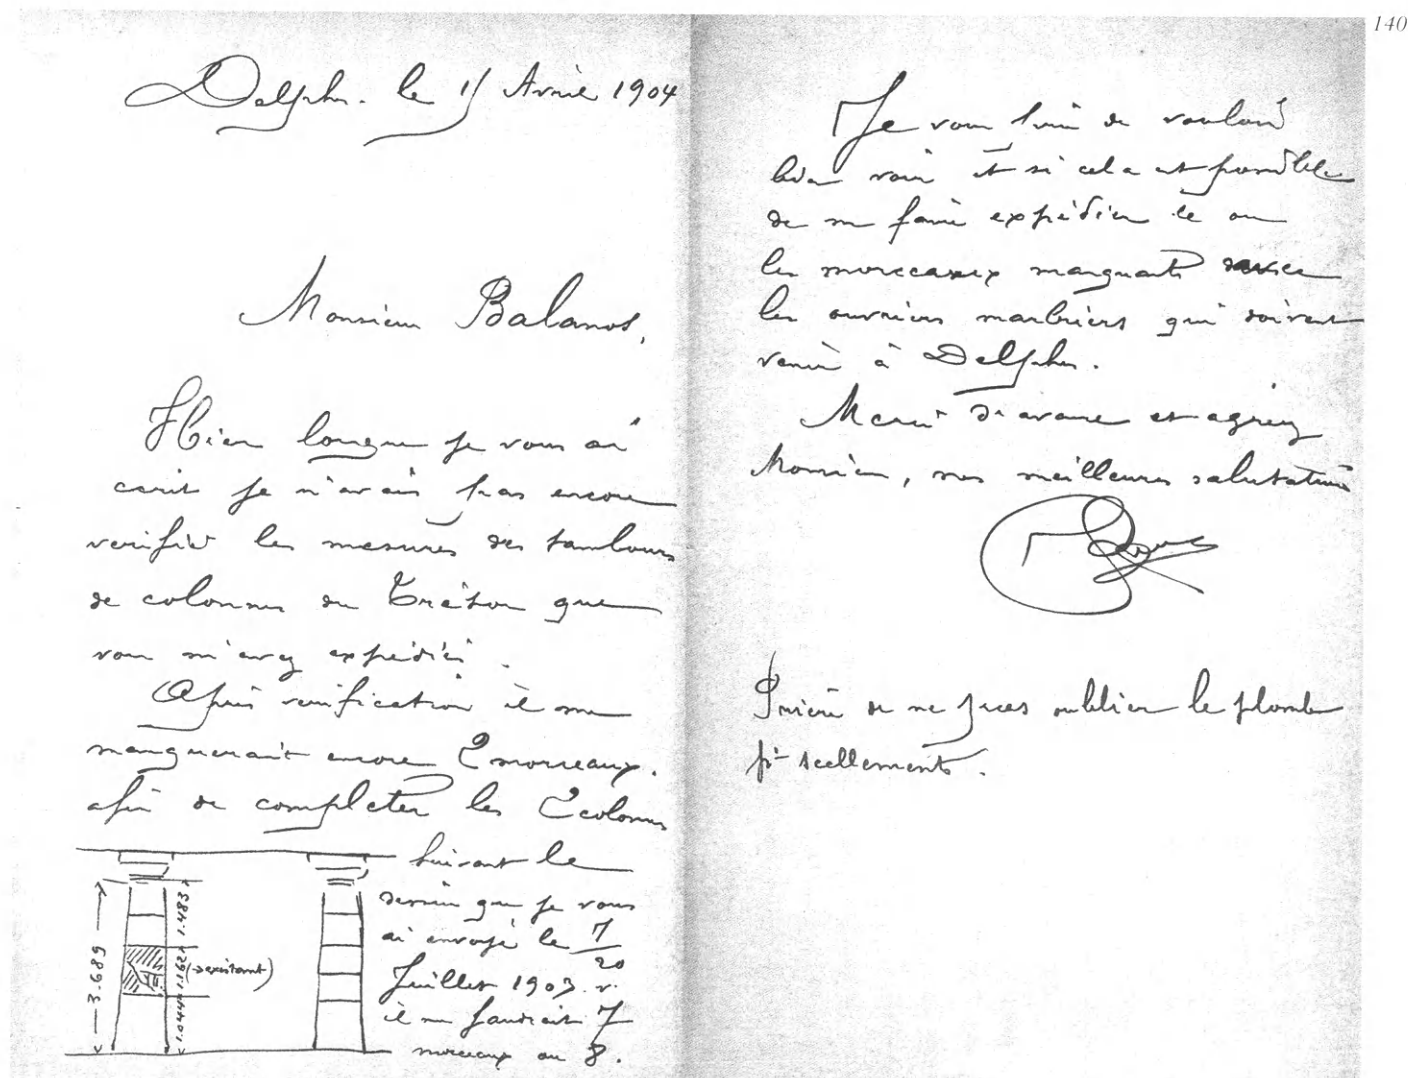 140
Delphes. le 1/ Avril 1904
Monsieur Balanos,
Hier lorsque je vous ai
écrit je n'avais pas encore
verifié les mesures des tambours
de colonnes du Trésor que
vous m'avez expédiés.
Après verification il me
manquerait encore 2 morceaux.
afin de completer les 2 colonnes
suivant le
dessin que je vous
ai envoyé le 7/20
Juillet 1903. v.
il me faudrait 7
morceaux ou 8.
3.689
1.483
1.162
1.044
(→ existant)
Je vous prie de vouloir
bien voir et si cela est possible
de me faire expédier le ou
les morceaux manquants avec
les ouvriers marbriers qui doivent
venir à Delphes.
Merci d'avance et agréez
Monsieur, mes meilleures salutations
Prière de ne pas oublier le plomb
pr scellements.